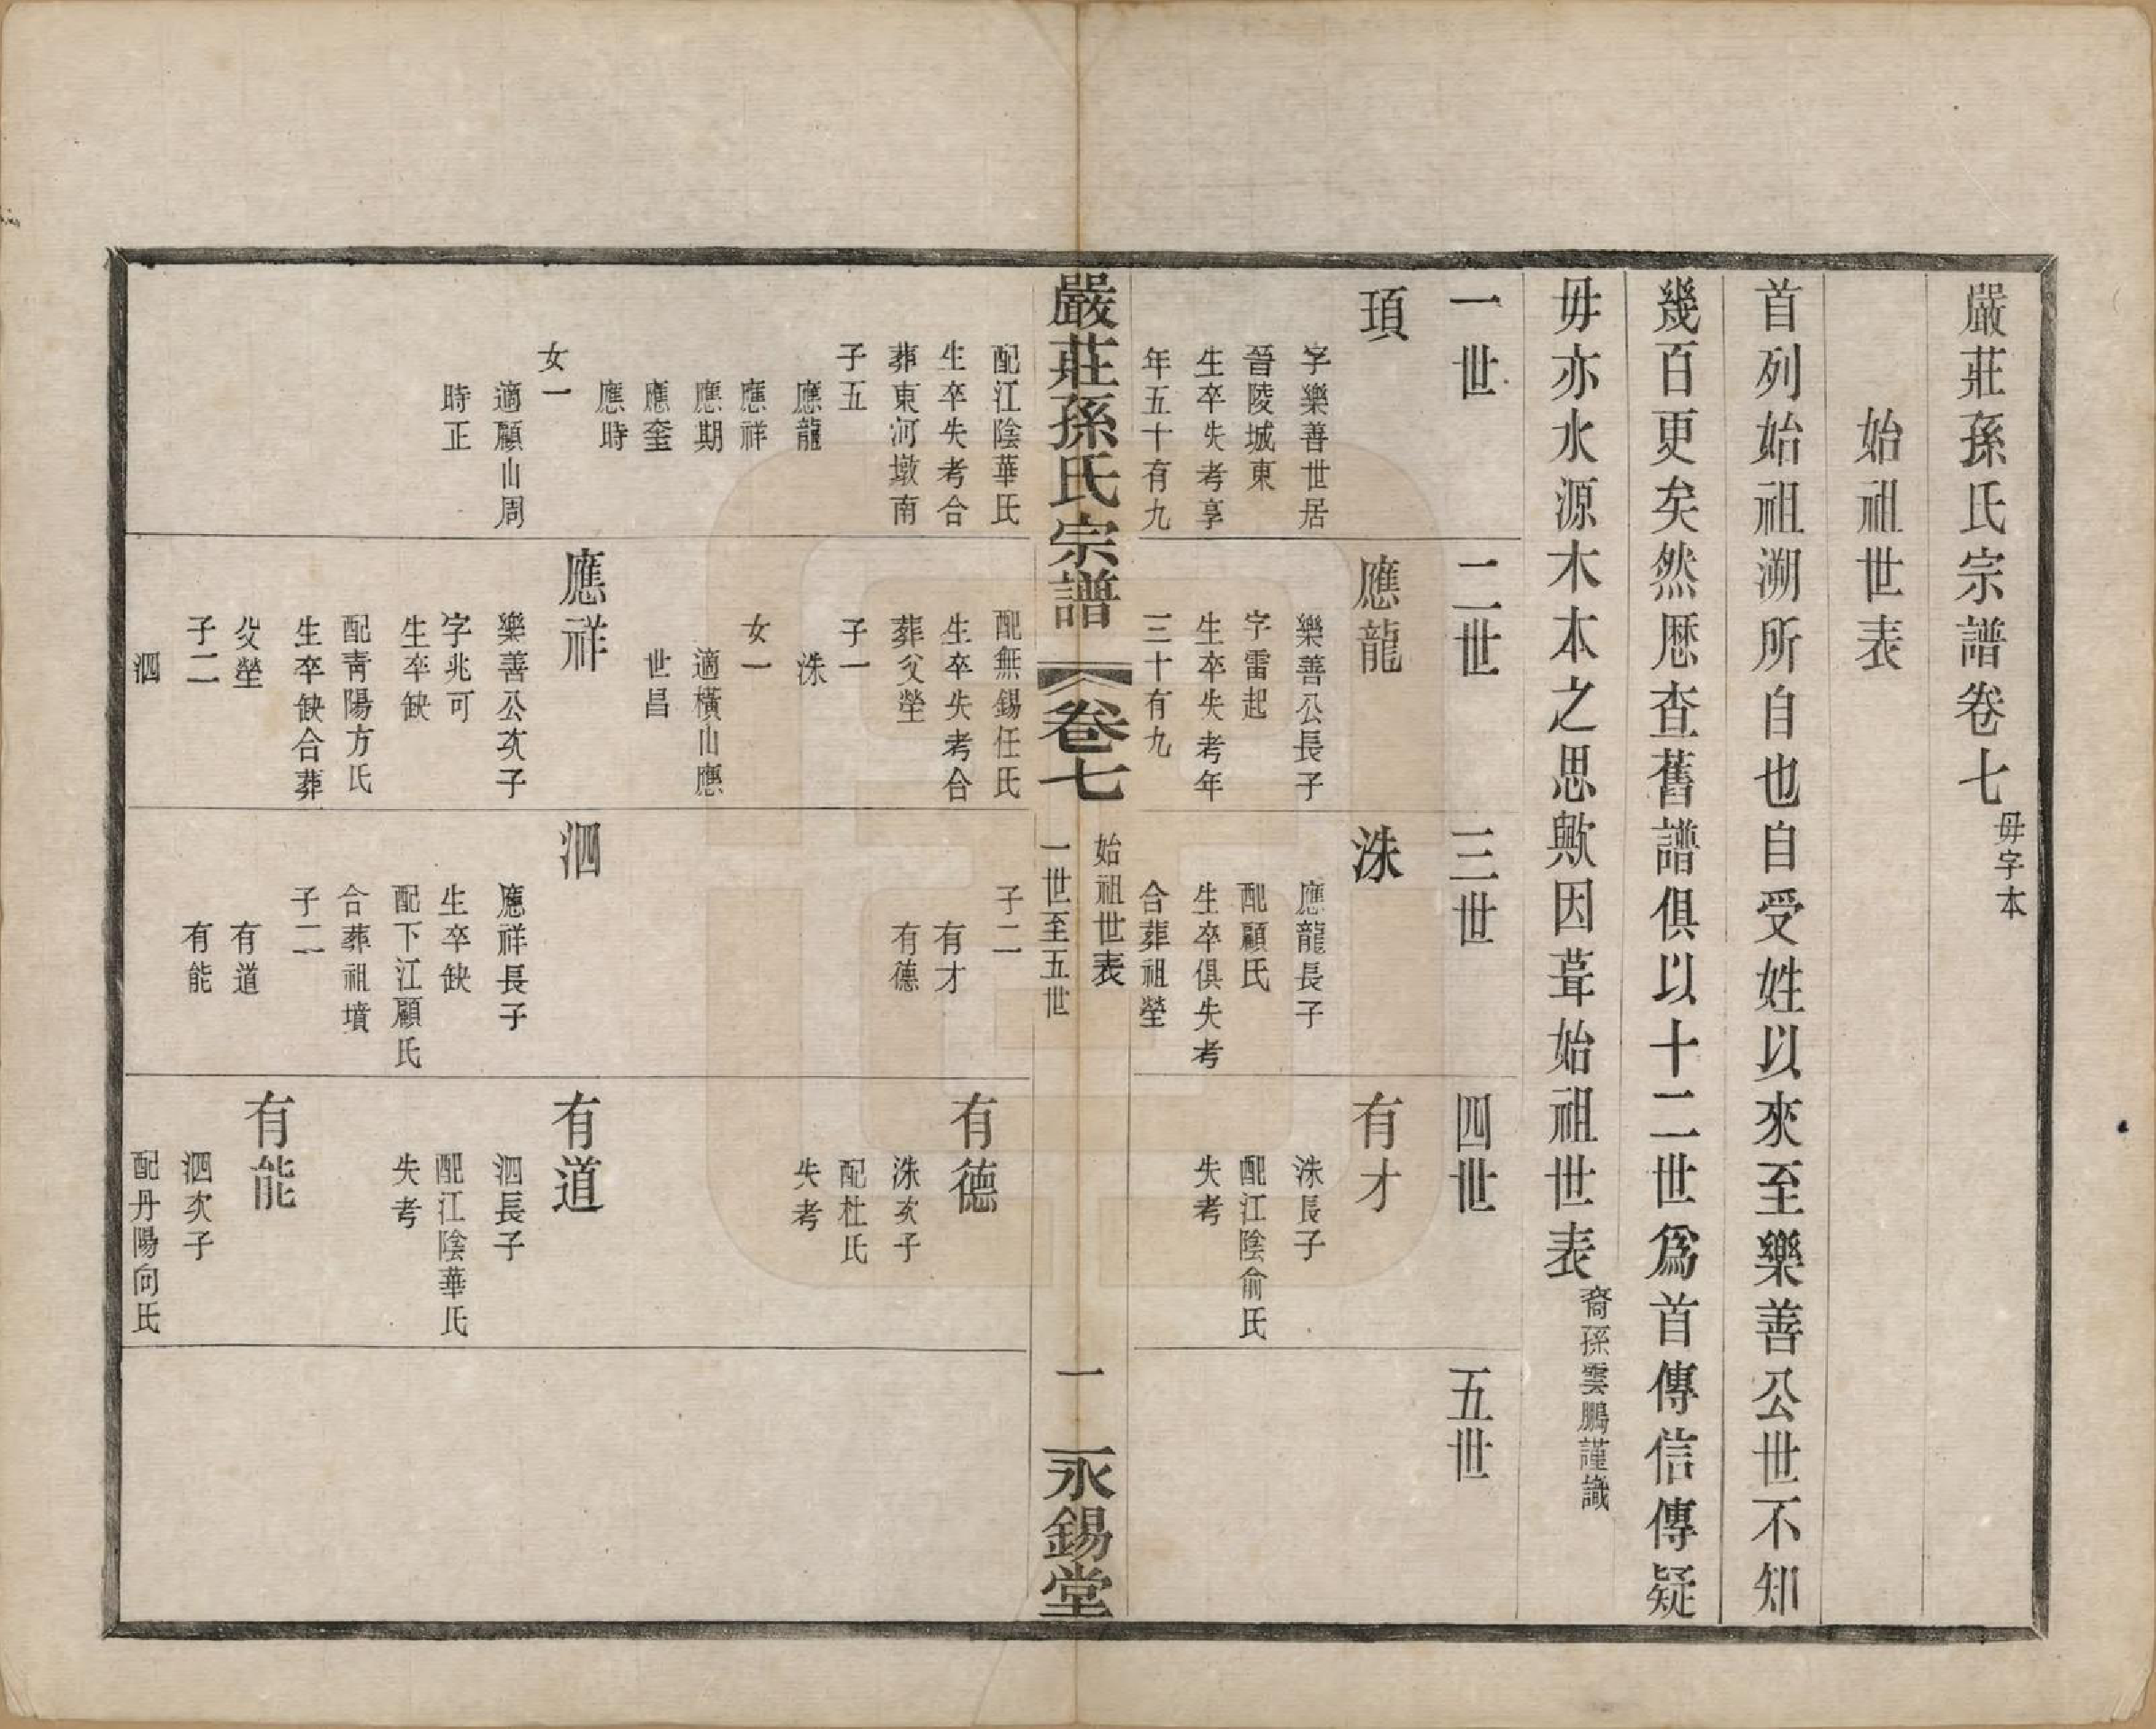 嚴莊孫氏宗譜卷七 毋字本
始祖世表
首列始祖溯所自也自受姓以來至樂善公世不知
幾百更矣然歷查舊譜俱以十二世爲首傳信傳疑
毋亦水源木本之思歟因葺始祖世表 裔孫雲鵬謹識
一世
頊
字樂善世居
晉陵城東
生卒失考享
年五十有九
二世
應龍
樂善公長子
字雷起
生卒失考年
三十有九
三世
洙
應龍長子
配顧氏
生卒俱失考
合葬祖塋
四世
有才
洙長子
配江陰俞氏
失考
五世
嚴莊孫氏宗譜
卷七
始祖世表
一世至五世
一
永錫堂
配江陰華氏
生卒失考合
葬東河墩南
子五
應龍
應祥
應期
應奎
應時
女一
適顧山周
時正
配無錫任氏
生卒失考合
葬父塋
子一
洙
女一
適橫山應
世昌
應祥
樂善公次子
字兆可
生卒缺
配青陽方氏
生卒缺合葬
父塋
子二
泗
子二
有才
有德
泗
應祥長子
生卒缺
配下江顧氏
合葬祖墳
子二
有道
有能
有德
洙次子
配杜氏
失考
有道
泗長子
配江陰華氏
失考
有能
泗次子
配丹陽向氏